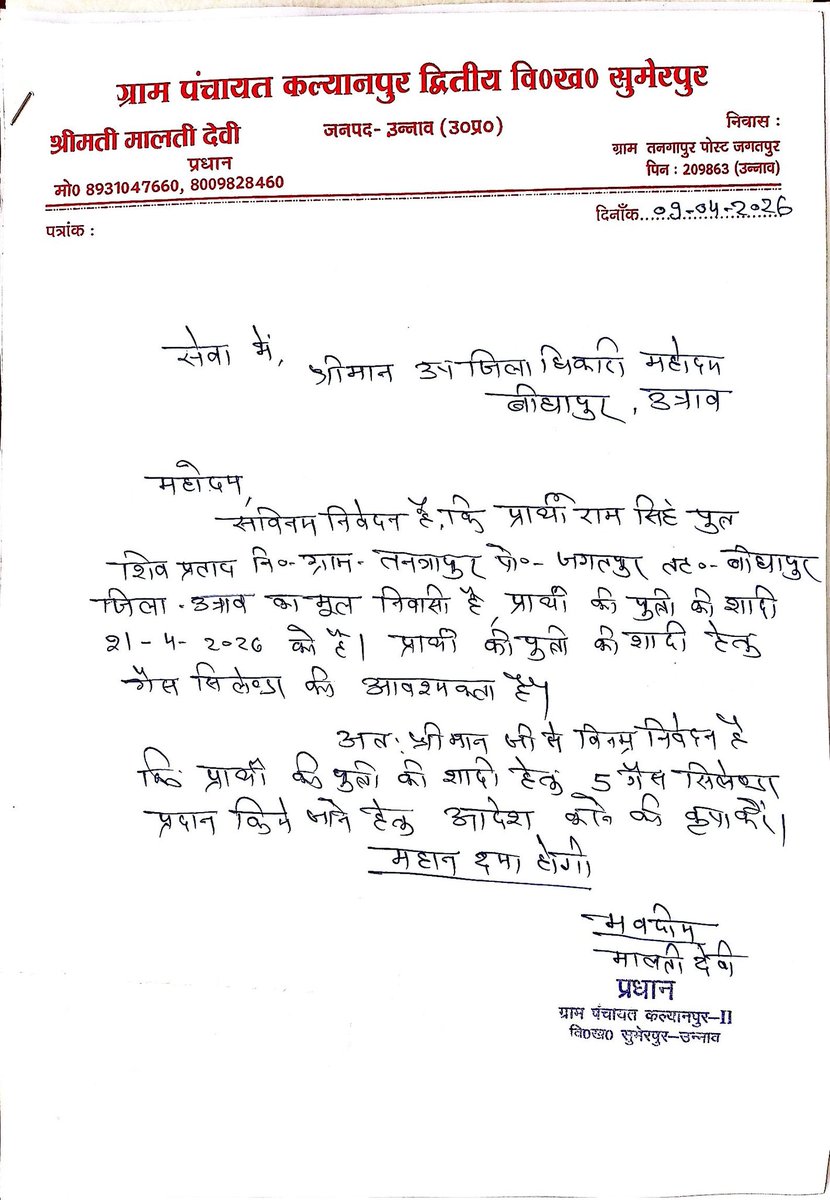 ग्राम पंचायत कल्यानपुर द्वितीय वि०ख० सुमेरपुर
श्रीमती मालती देवी
प्रधान
मो० 8931047660, 8009828460
जनपद- उन्नाव (उ०प्र०)
निवास :
ग्राम तनगापुर पोस्ट जगतपुर
पिन : 209863 (उन्नाव)
पत्रांक :
दिनाँक 09-04-2026
सेवा में,
श्रीमान उप जिलाधिकारी महोदय
बीघापुर, उन्नाव
महोदय,
सविनय निवेदन है, कि प्रार्थी राम सिंह पुत्र
शिव प्रसाद नि०- ग्राम- तनगापुर पो०- जगतपुर तह०- बीघापुर
जिला- उन्नाव का मूल निवासी है, प्रार्थी की पुत्री की शादी
21-4-2026 को है। प्रार्थी की पुत्री की शादी हेतु
गैस सिलेण्डर की आवश्यकता है।
अतः श्रीमान जी से विनम्र निवेदन है
कि प्रार्थी की पुत्री की शादी हेतु 5 गैस सिलेण्डर
प्रदान किये जाने हेतु आदेश करने की कृपा करें।
महान दया होगी
भवदीय
मालती देवी
प्रधान
ग्राम पंचायत कल्यानपुर-II
वि०ख० सुमेरपुर-उन्नाव